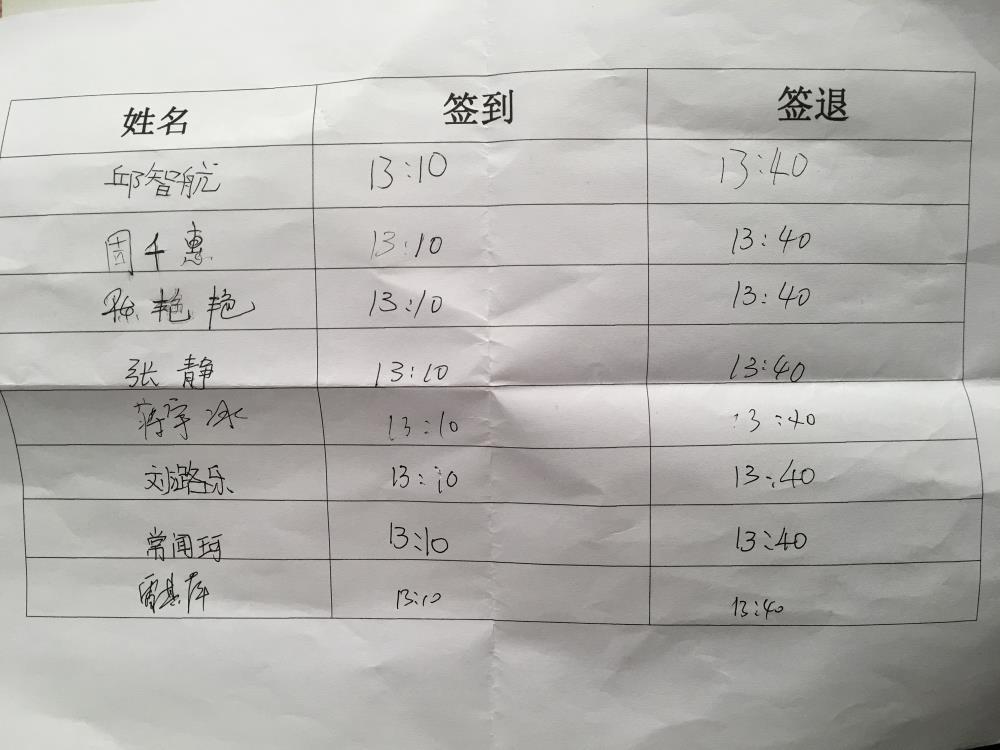 姓名 签到 签退
邱智航 13:10 13:40
千惠 13:10 13:40
艳艳 13:10 13:40
张静 13:10 13:40
蒋宇冰 13:10 13:40
刘璐乐 13:10 13:40
常闻珂 13:10 13:40
雷其 13:10 13:40